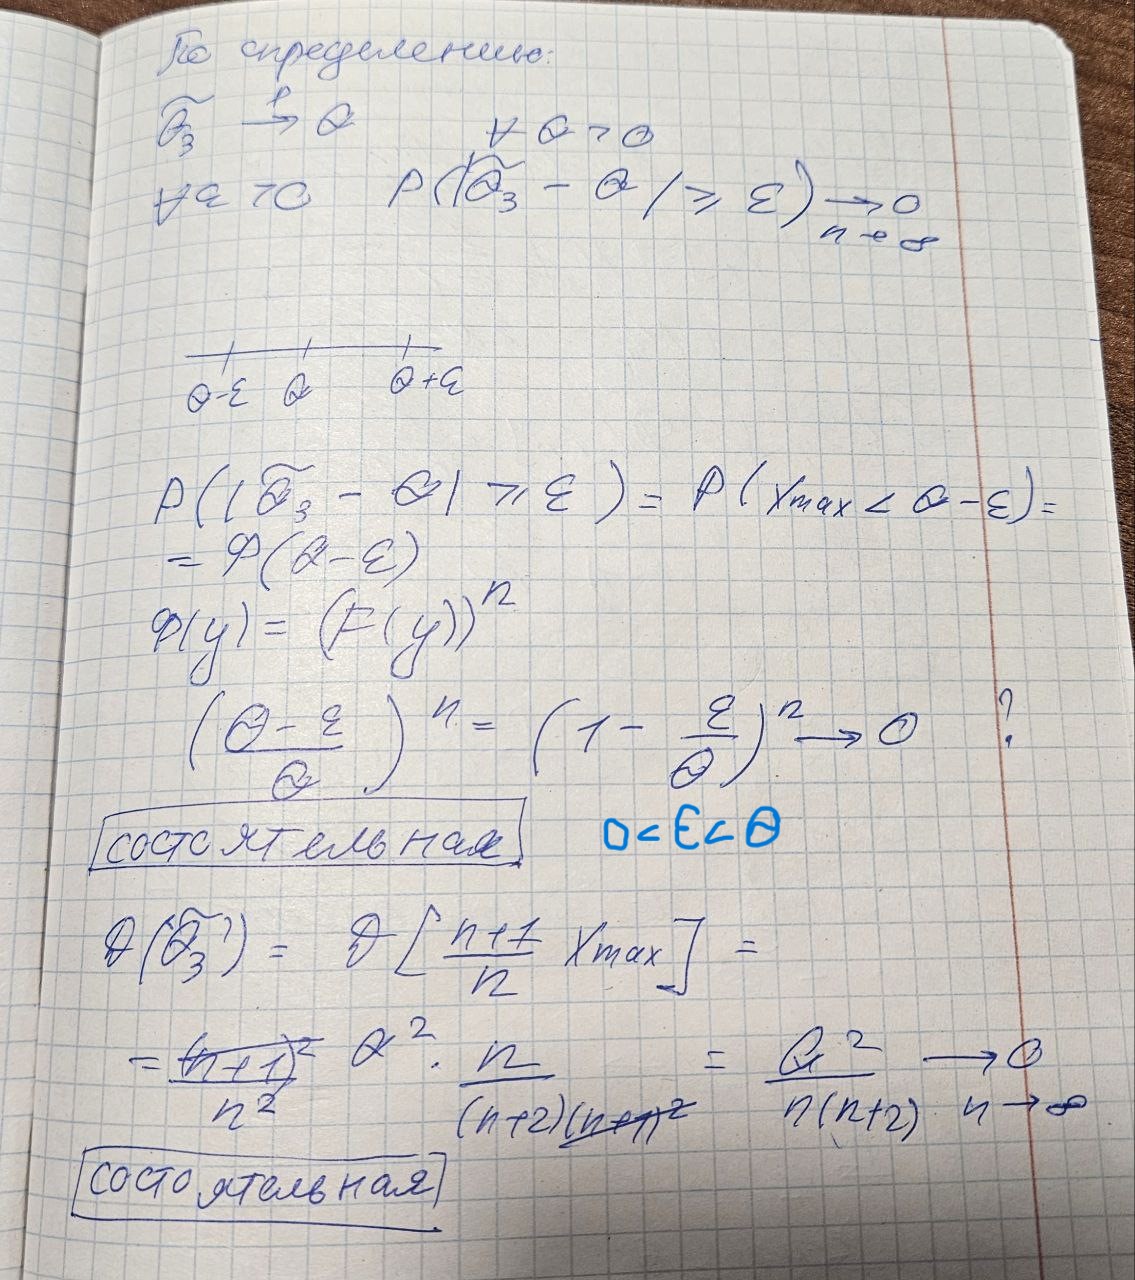 По определению:
θ̃₃ →ᴾ θ ∀ θ > 0
∀ε > 0 P(|θ̃₃ - θ| ⩾ ε) → 0
n → ∞
θ-ε θ θ+ε
P(|θ̃₃ - θ| ⩾ ε) = P(Xmax < θ - ε) =
= Φ(θ-ε)
Φ(y) = (F(y))ⁿ
((θ-ε)/θ)ⁿ = (1 - ε/θ)ⁿ → 0 ?
состоятельная 0 < ε < θ
D(θ̃₃') = D[(n+1)/n Xmax] =
= (n+1)²/n² θ² · n/((n+2)(n+1)²) = θ²/(n(n+2)) → 0 n → ∞
состоятельная